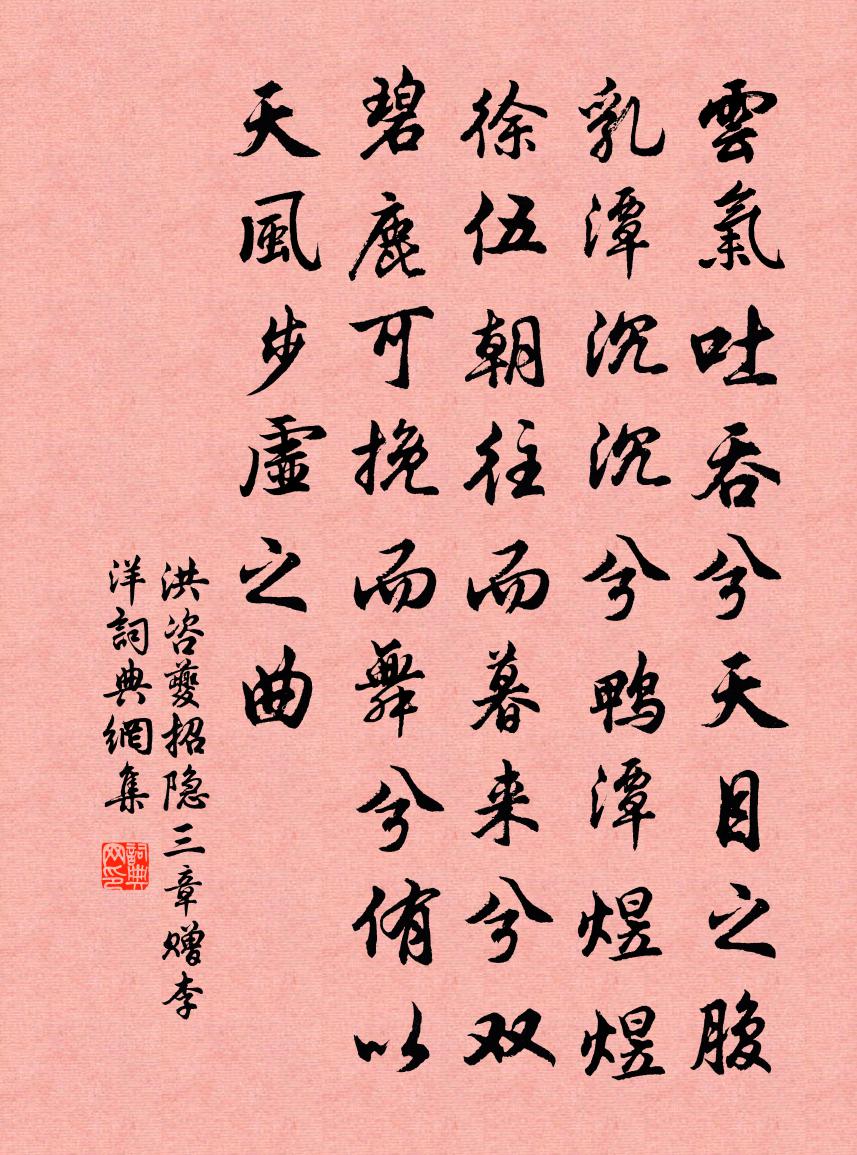 雲氣吐吞兮天目之腹
乳潭沉沉兮鴨潭煜煜
徐伍朝往而暮来兮双
碧鹿可挽而舞兮侑以
天風步虛之曲
洪咨夔招隐三章赠李
洋詞典網集
詞典网印